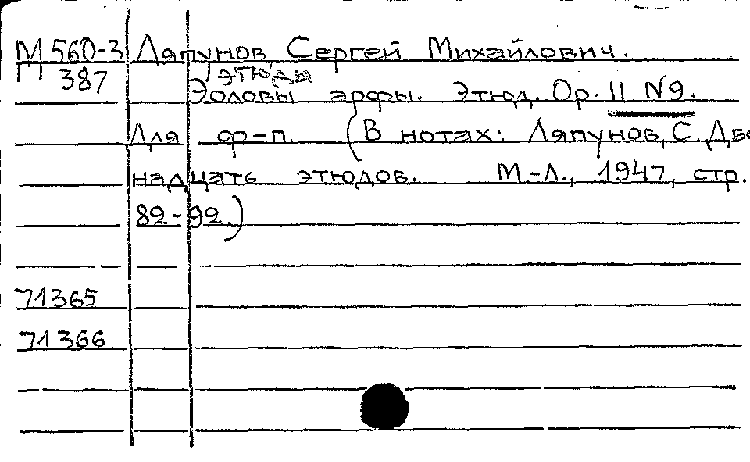 М 560-3 Ляпунов, Сергей Михайлович.
387 этюды
Эоловы арфы. Этюд. Ор. 11 №9.
Для ф-п. (В нотах: Ляпунов, С. Две
надцать этюдов. М-Л., 1947, стр.
82-92.)
71365
71366